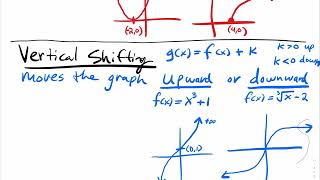 (2,0) (4,0)
Vertical Shifting g(x) = f(x) + k k>0 up
k<0 down
moves the graph upward or downward
f(x) = x³+1 f(x) = ∛x - 2
(0,1) +∞